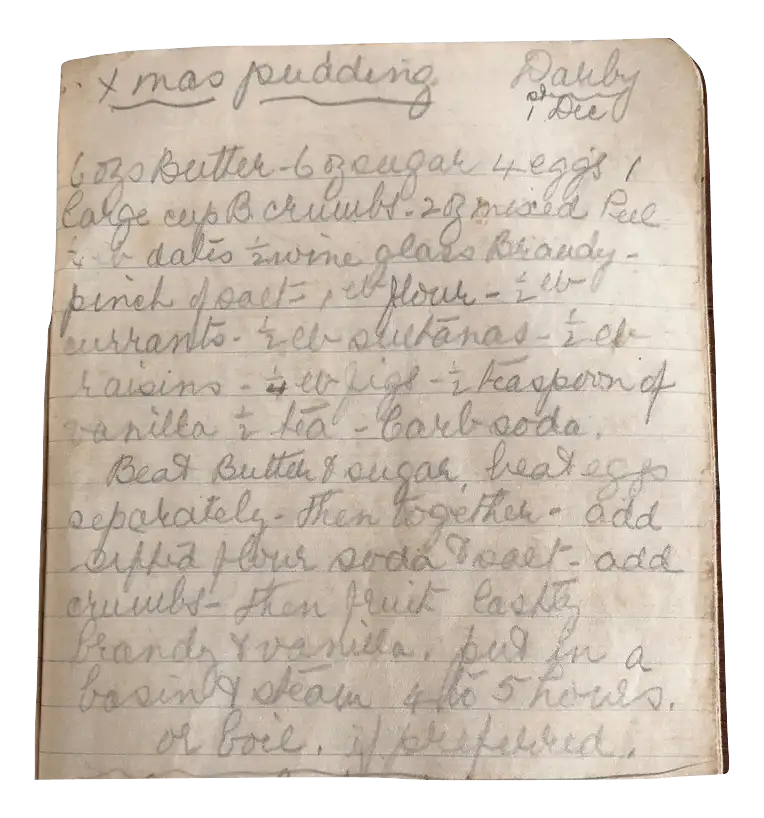 Xmas pudding Darby
1st Dec
6 ozs Butter - 6 oz sugar 4 eggs 1
large cup B. crumbs - 2 oz mixed Peel
¼ lb dates ½ wine glass Brandy -
pinch of salt - 1 lb flour - ½ lb
currants - ½ lb sultanas - ½ lb
raisins - ¼ lb figs - ½ teaspoon of
vanilla ½ tea - Carb soda.
Beat Butter & sugar, beat eggs
separately - then together - add
sifted flour soda & salt - add
crumbs - then fruit lastly
brandy & vanilla. put in a
basin & steam 4 to 5 hours.
or boil. if preferred.